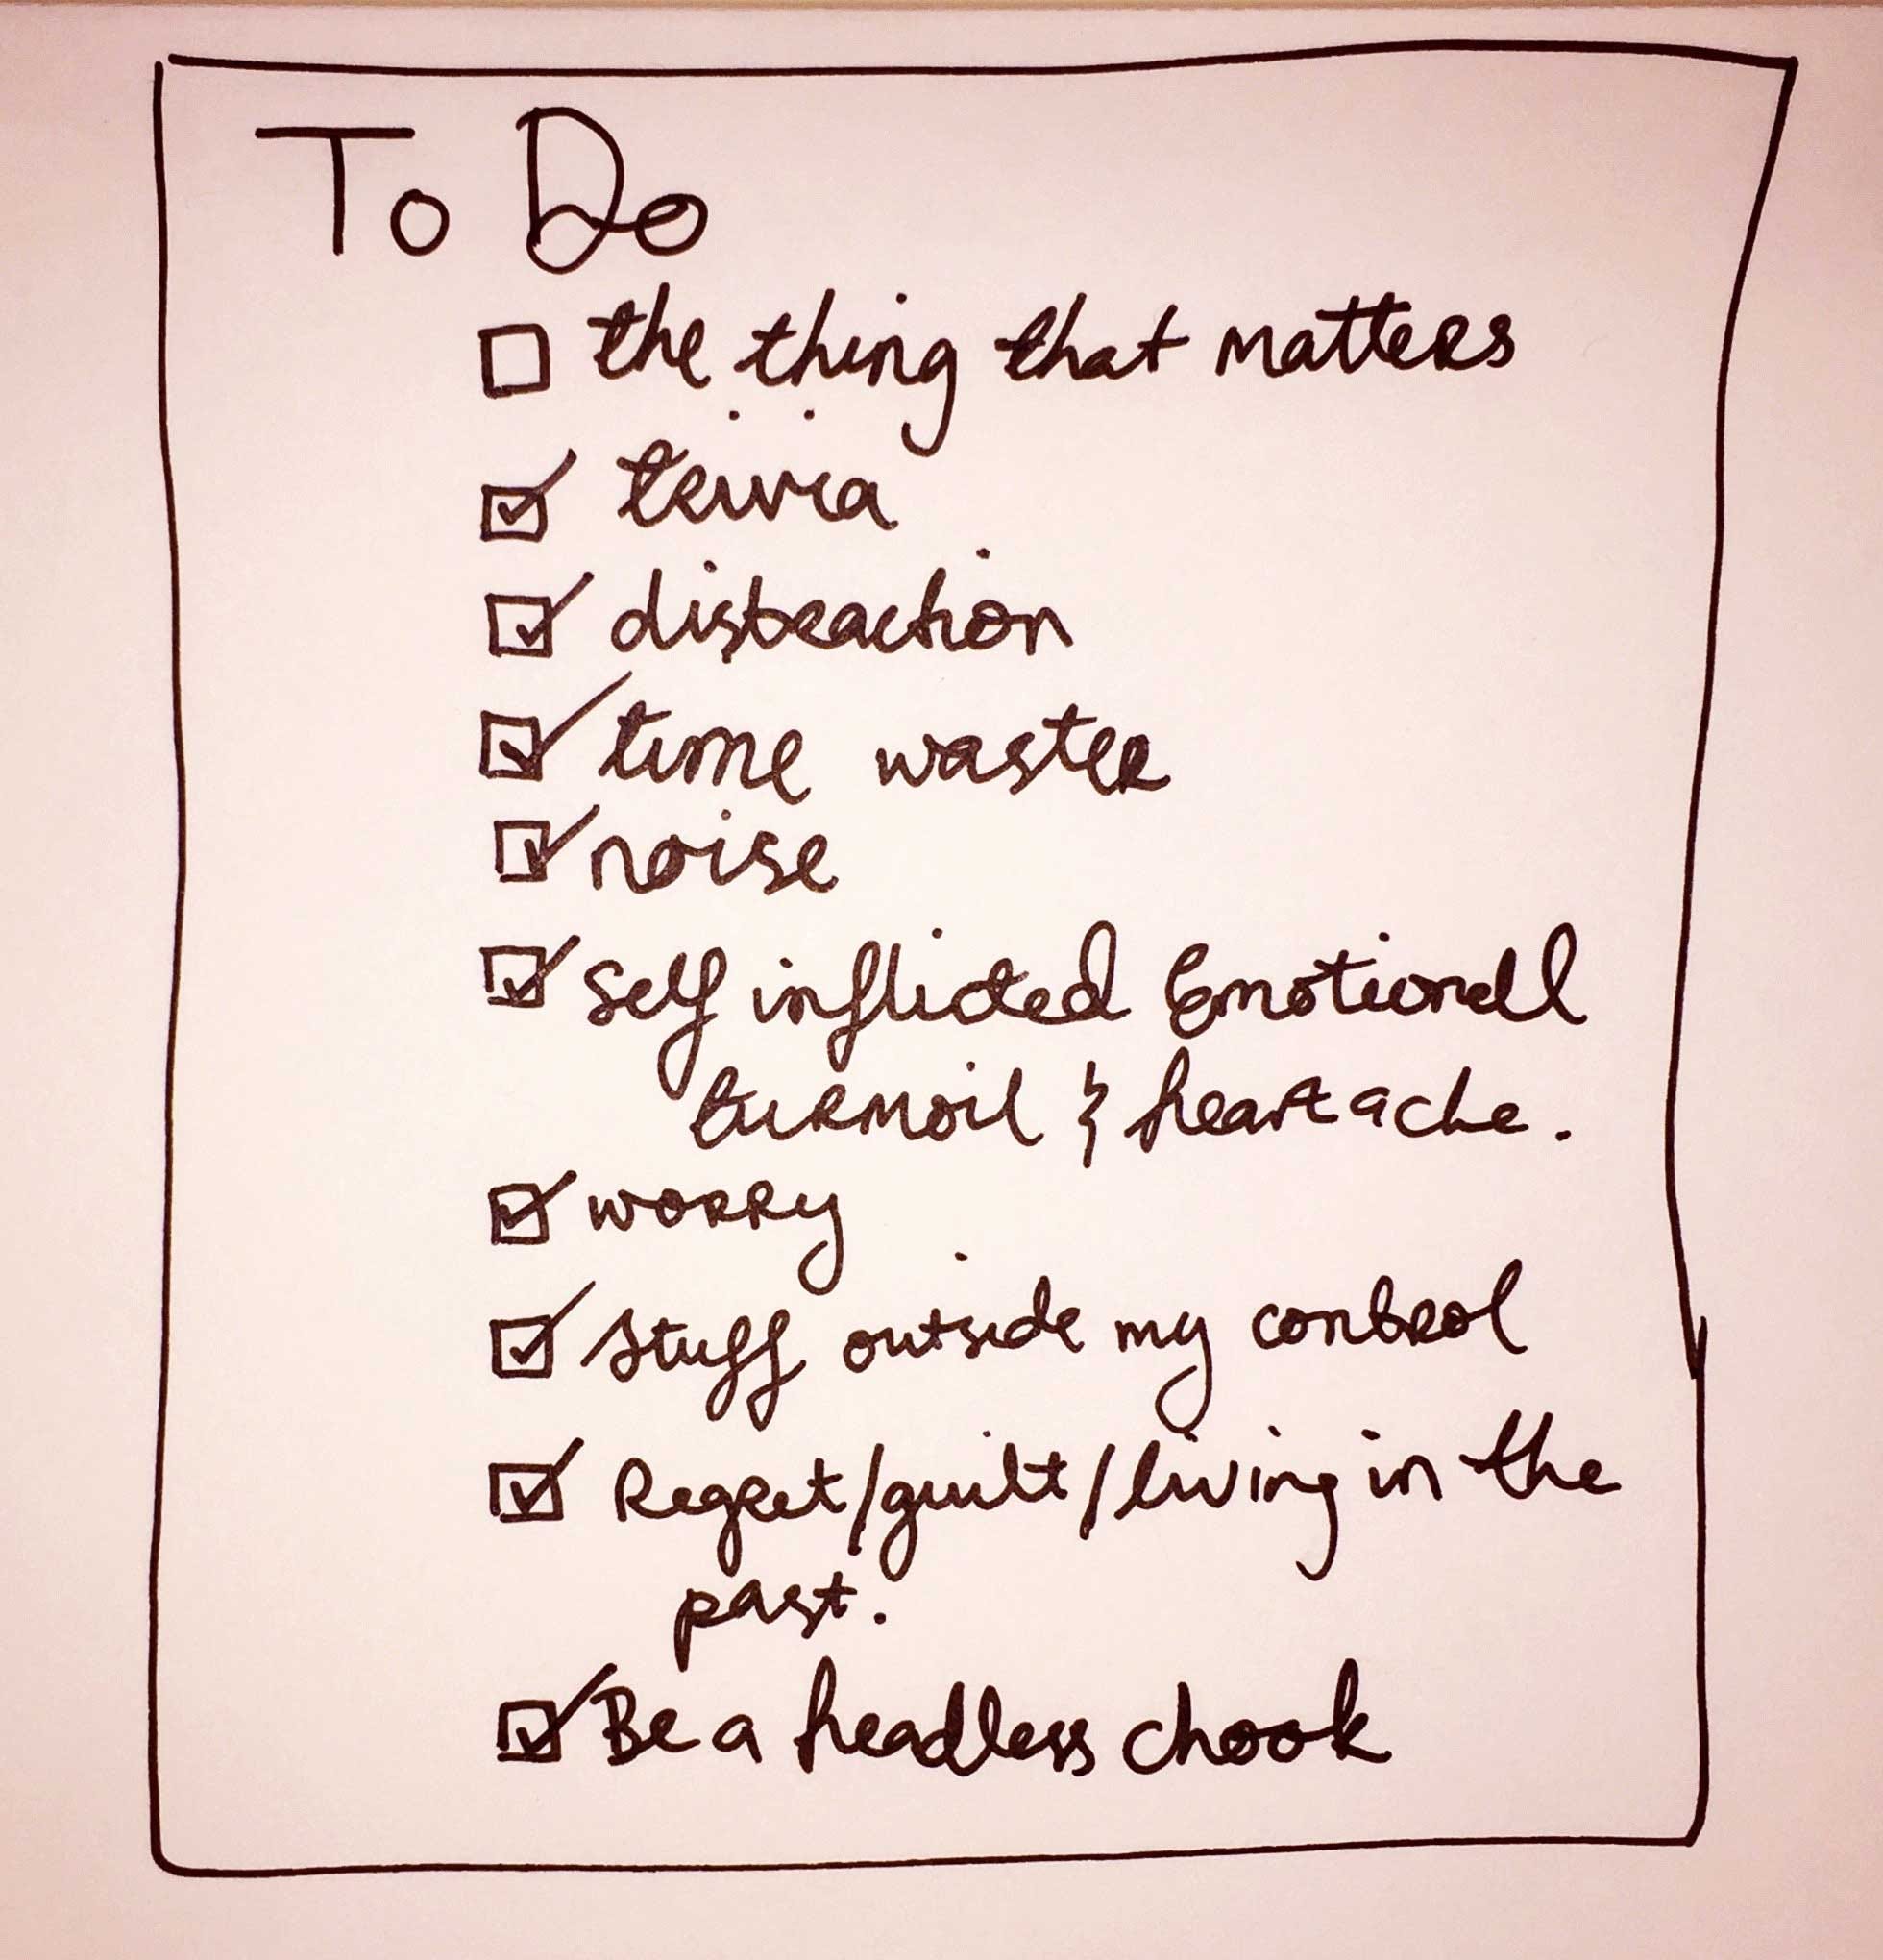 To Do
☐ the thing that matters
☑ trivia
☑ distraction
☑ time waster
☑ noise
☑ self inflicted Emotionall
turmoil & heartache.
☑ worry
☑ stuff outside my control
☑ Regret/guilt/living in the
past.
☑ Be a headless chook